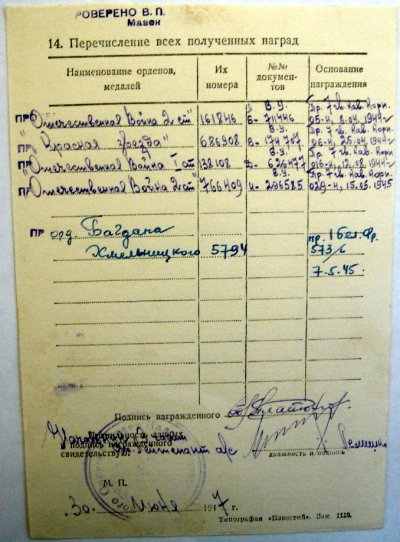 РОВЕРЕНО В. П.
14. Перечисление всех полученных наград
Наименование орденов, медалей
Их номера
№№ документов
Основание награждения
„Отечественная Война 2 ст" 161846 Б- 711446 Пр. 7 гв. Кав. Корп. 05-н 8.04.1944г
„Красная Звезда" 686908 В- 174767 Пр. 7 гв. Кав. Корп. 25.04.1944г
„Отечественная Война I ст" 138108 В- 626477 Пр. 7 гв. Кав. Корп. 016-н, 12.08.1944г
„Отечественная Война 2 ст" 766409 296585 029-н. 15.05.1945
ПР орд. Багдана пр. 1 Бел. Фр.
Хмельницкого 5794 573/б
7.5.45.
Подпись награжденного
Правильность данных
и подпись награжденного
свидетельствую:
Лейтенант а/с
должность и подпись
М. П.
30 Июня 1947 г.
Типография «Известий». Зак. 1112.